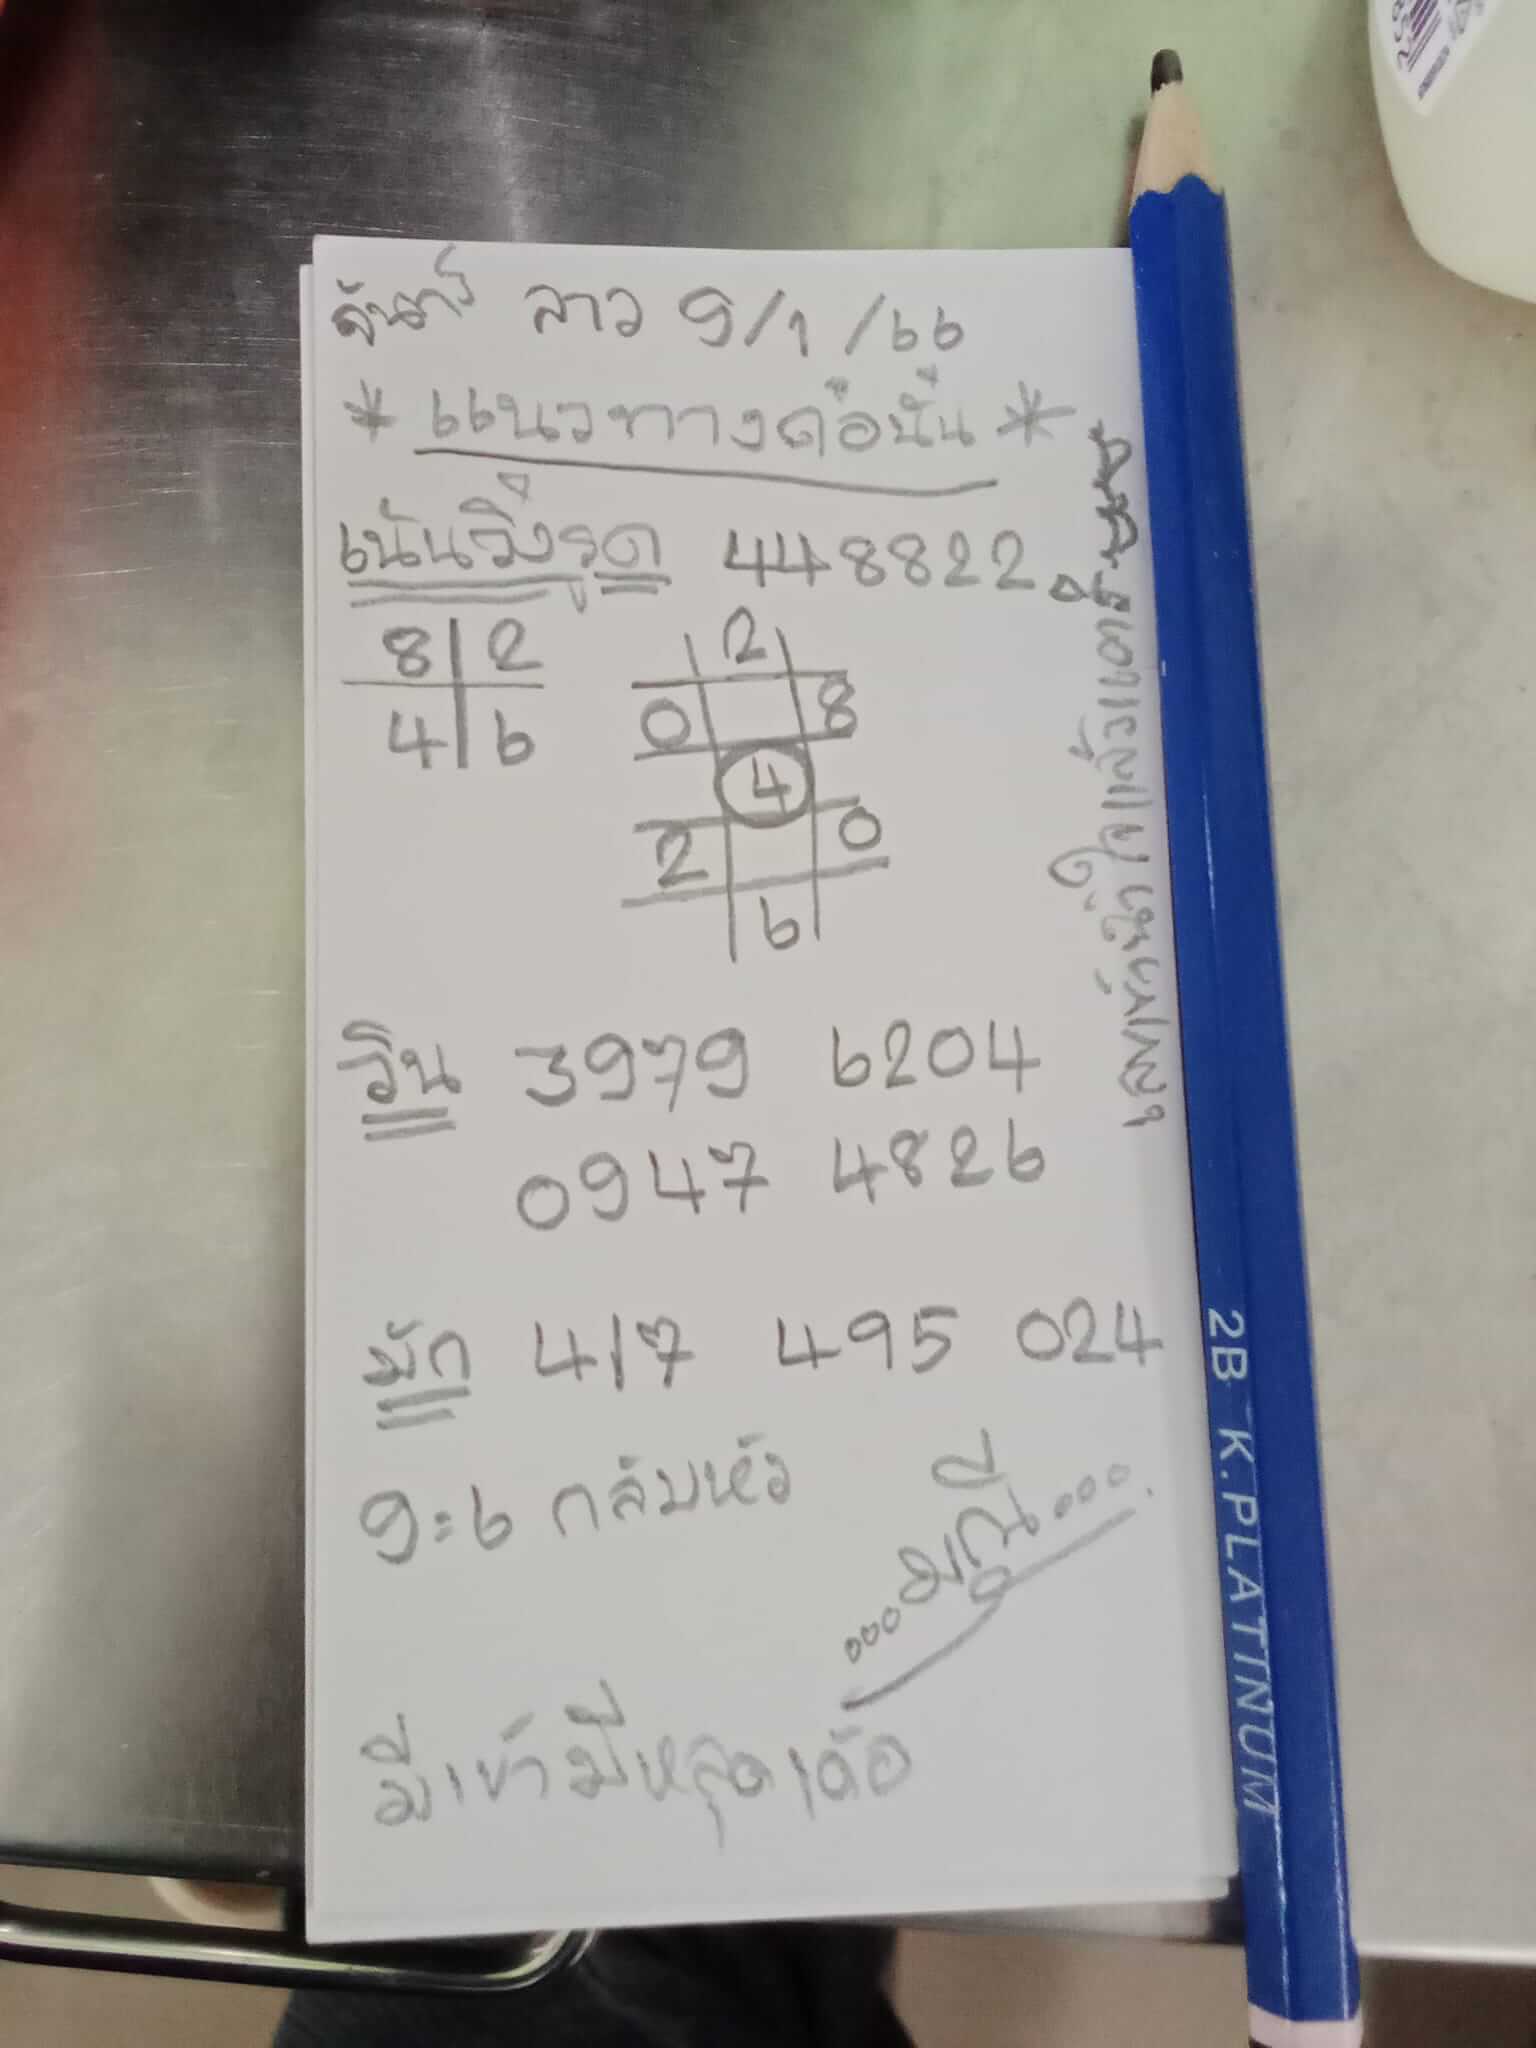 จันทร์ ลาว 9/1/66
* แนวทางต่อนั่น *
เน้นวิ่งรูด 448822
8 2
4 6
2
0 8
4
2 0
6
วิน 3979 6204
0947 4826
มัก 417 495 024
9=6 กลับหัว
...มณี...
มีเข้ามีหลุดเด้อ
2B K.PLATINUM